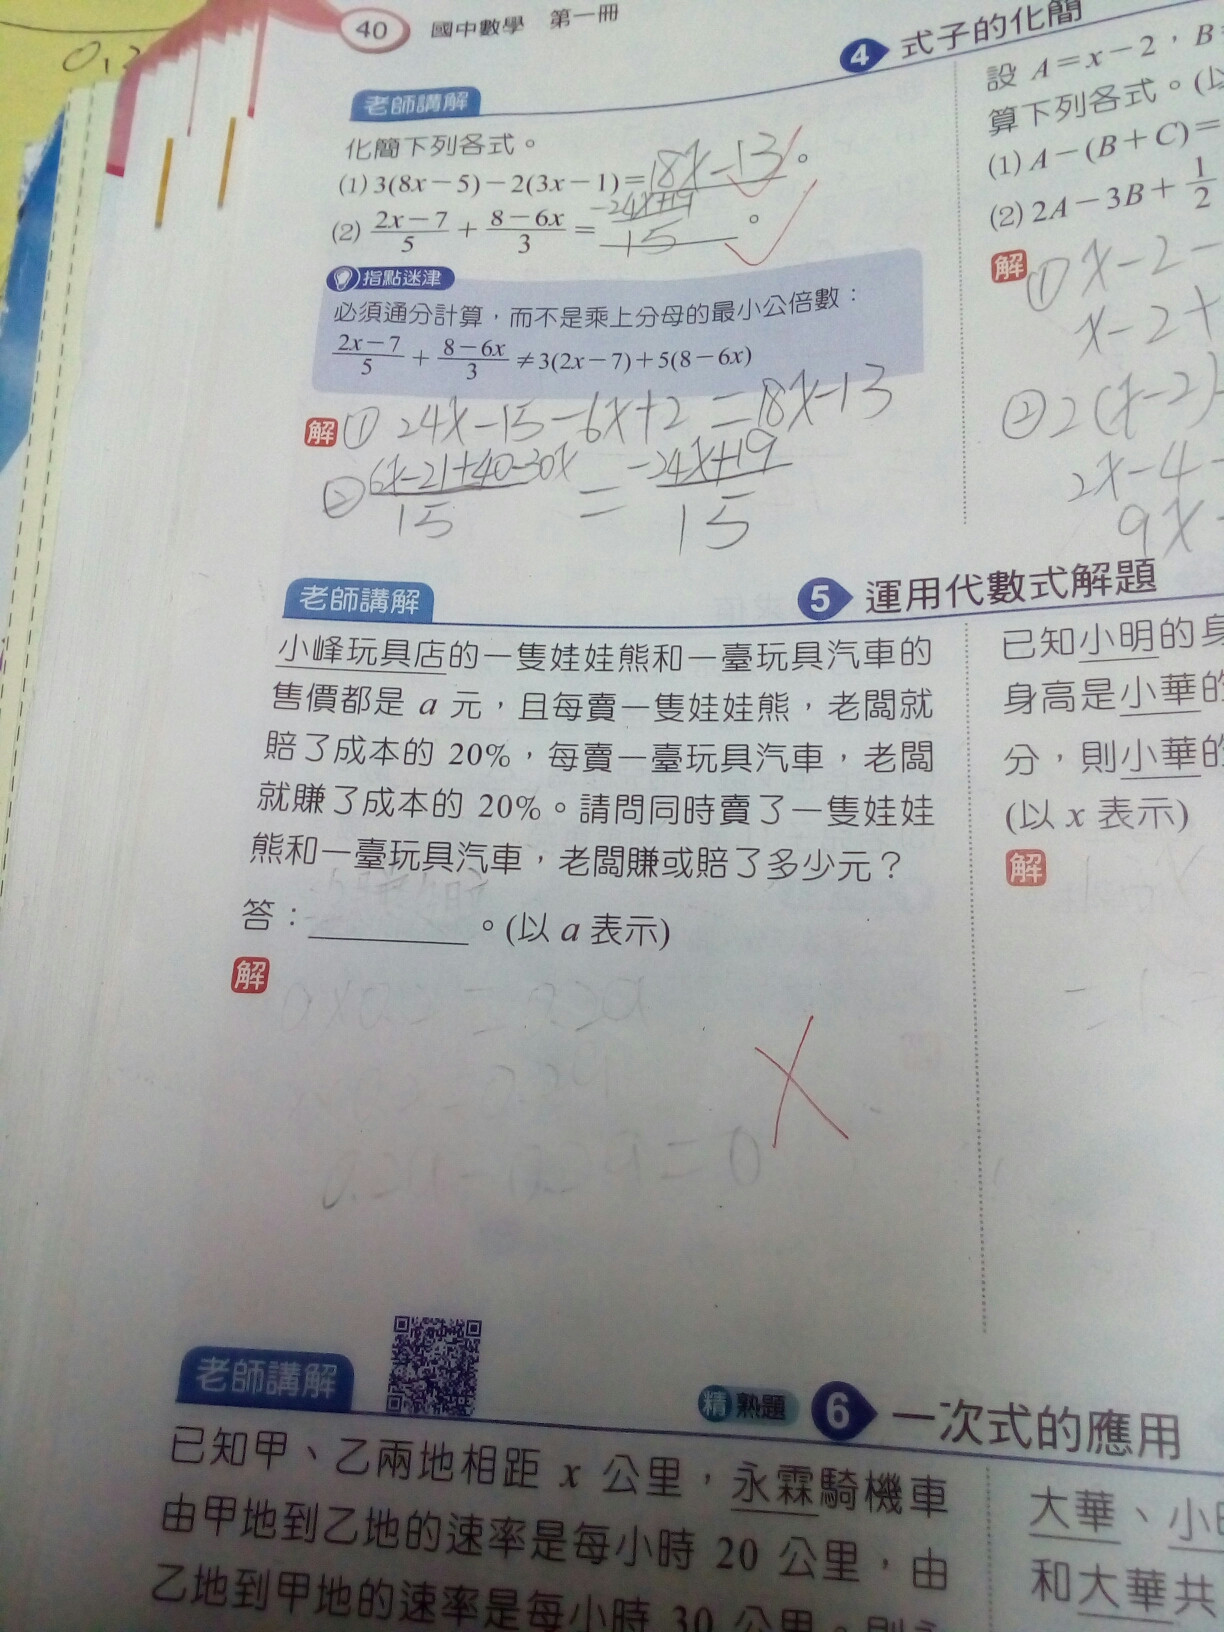 40 國中數學 第一冊
4 式子的化簡
老師講解
化簡下列各式。
(1) 3(8x-5)-2(3x-1)=18x-13。
(2) \frac{2x-7}{5}+\frac{8-6x}{3}=\frac{-24x+19}{15}。
指點迷津
必須通分計算，而不是乘上分母的最小公倍數：
\frac{2x-7}{5}+\frac{8-6x}{3}≠3(2x-7)+5(8-6x)
解 ① 24x-15-6x+2=18x-13
② \frac{6x-21+40-30x}{15}=\frac{-24x+19}{15}
設 A=x-2，B
算下列各式。(以
(1) A-(B+C)=
(2) 2A-3B+\frac{1}{2}
解 ① x-2-
x-2+
② 2(x-2)
2x-4-
9x
老師講解
5 運用代數式解題
小峰玩具店的一隻娃娃熊和一臺玩具汽車的
售價都是 a 元，且每賣一隻娃娃熊，老闆就
賠了成本的 20%，每賣一臺玩具汽車，老闆
就賺了成本的 20%。請問同時賣了一隻娃娃
熊和一臺玩具汽車，老闆賺或賠了多少元？
答：。(以 a 表示)
解
已知小明的身
身高是小華的
分，則小華的
(以 x 表示)
解
老師講解
精熟題 6 一次式的應用
已知甲、乙兩地相距 x 公里，永霖騎機車
由甲地到乙地的速率是每小時 20 公里，由
乙地到甲地的速率是每小時 30 公里。則永
大華、小明
和大華共